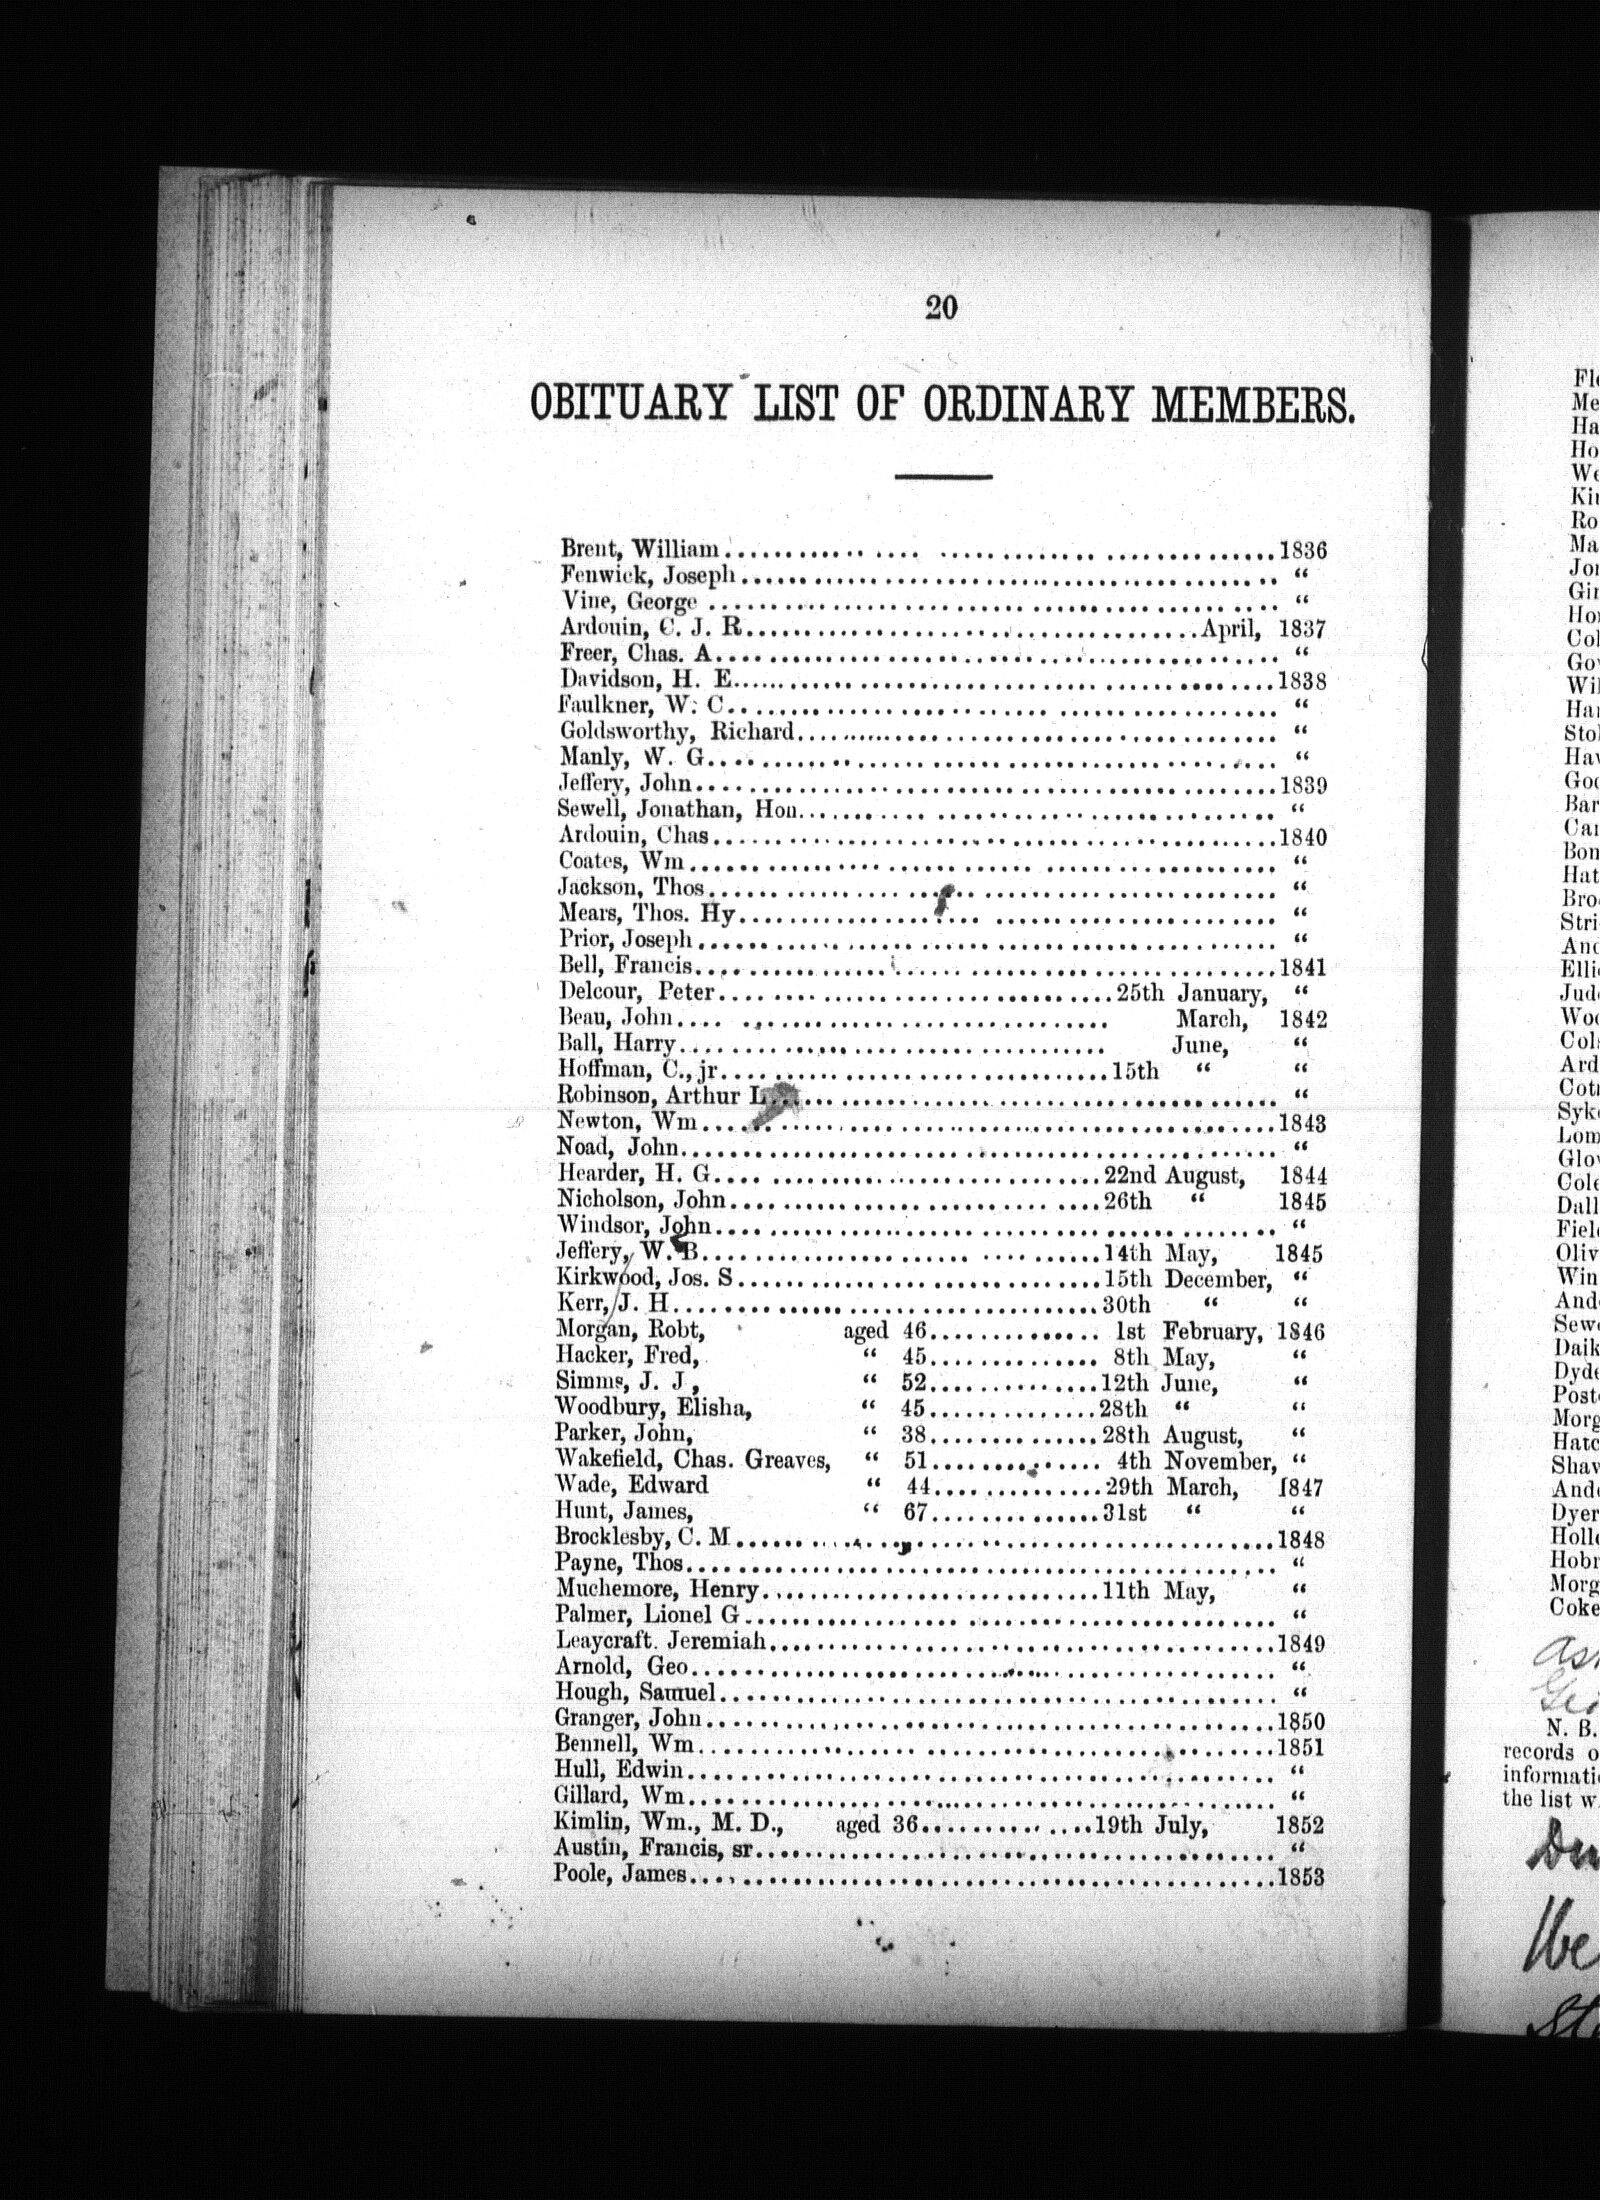 20
OBITUARY LIST OF ORDINARY MEMBERS.
Brent, William 1836
Fenwick, Joseph “
Vine, George “
Ardouin, C. J. R. April, 1837
Freer, Chas. A. “
Davidson, H. E. 1838
Faulkner, W. C. “
Goldsworthy, Richard “
Manly, W. G. “
Jeffery, John 1839
Sewell, Jonathan, Hon. “
Ardouin, Chas 1840
Coates, Wm “
Jackson, Thos “
Mears, Thos. Hy “
Prior, Joseph “
Bell, Francis 1841
Delcour, Peter 25th January, “
Beau, John March, 1842
Ball, Harry June, “
Hoffman, C., jr 15th “ “
Robinson, Arthur L “
Newton, Wm 1843
Noad, John “
Hearder, H. G. 22nd August, 1844
Nicholson, John 26th “ 1845
Windsor, John “
Jeffery, W. B. 14th May, 1845
Kirkwood, Jos. S 15th December, “
Kerr, J. H. 30th “ “
Morgan, Robt, aged 46 1st February, 1846
Hacker, Fred, “ 45 8th May, “
Simms, J. J, “ 52 12th June, “
Woodbury, Elisha, “ 45 28th “ “
Parker, John, “ 38 28th August, “
Wakefield, Chas. Greaves, “ 51 4th November, “
Wade, Edward “ 44 29th March, 1847
Hunt, James, “ 67 31st “ “
Brocklesby, C. M 1848
Payne, Thos “
Muchemore, Henry 11th May, “
Palmer, Lionel G “
Leaycraft. Jeremiah 1849
Arnold, Geo “
Hough, Samuel “
Granger, John 1850
Bennell, Wm 1851
Hull, Edwin “
Gillard, Wm “
Kimlin, Wm., M. D., aged 36 19th July, 1852
Austin, Francis, sr “
Poole, James 1853
N. B.
records
the list